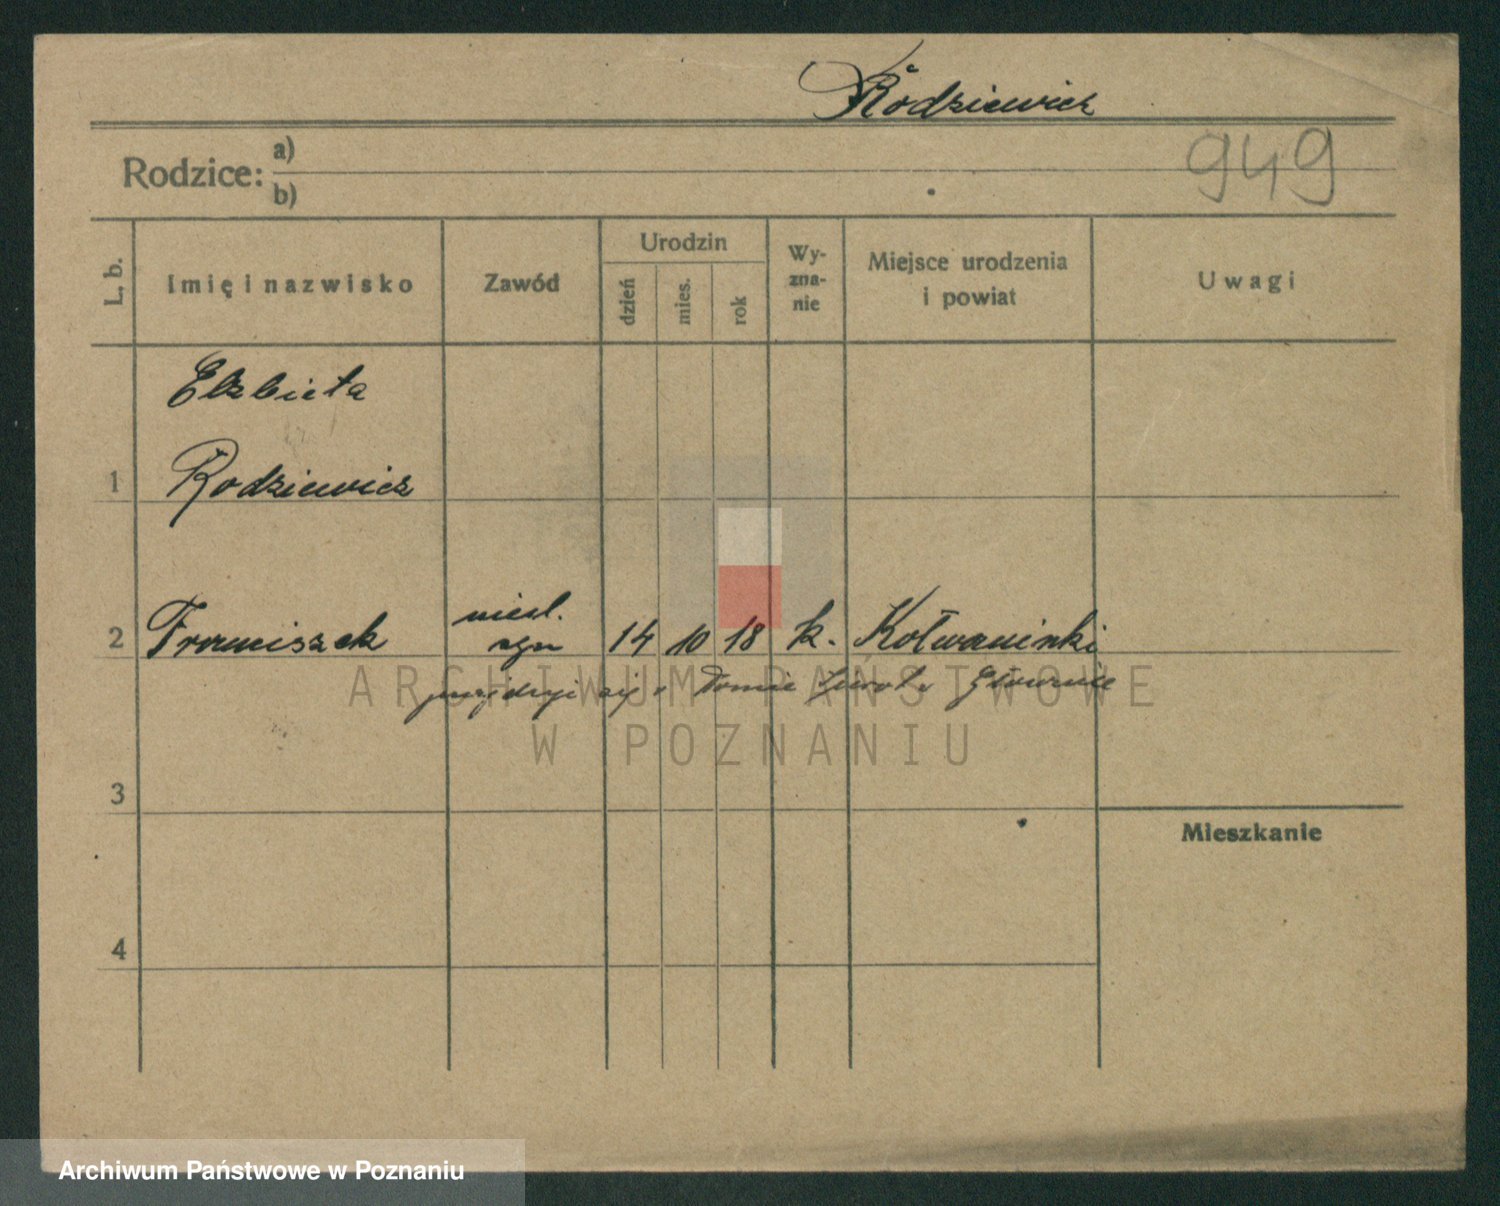 Rodziewicz
949
Rodzice: a)
b)
L. b. Imię i nazwisko Zawód Urodzin dzień mies. rok Wy-zna-nie Miejsce urodzenia i powiat Uwagi
Elżbieta
1 Rodziewicz
niesl.
2 Franciszek syn 14 10 18 k. Kołwaninki
znajduje się w Domie Sierot w
ARCHIWUM PAŃSTWOWE
W POZNANIU
3
Mieszkanie
4
Archiwum Państwowe w Poznaniu